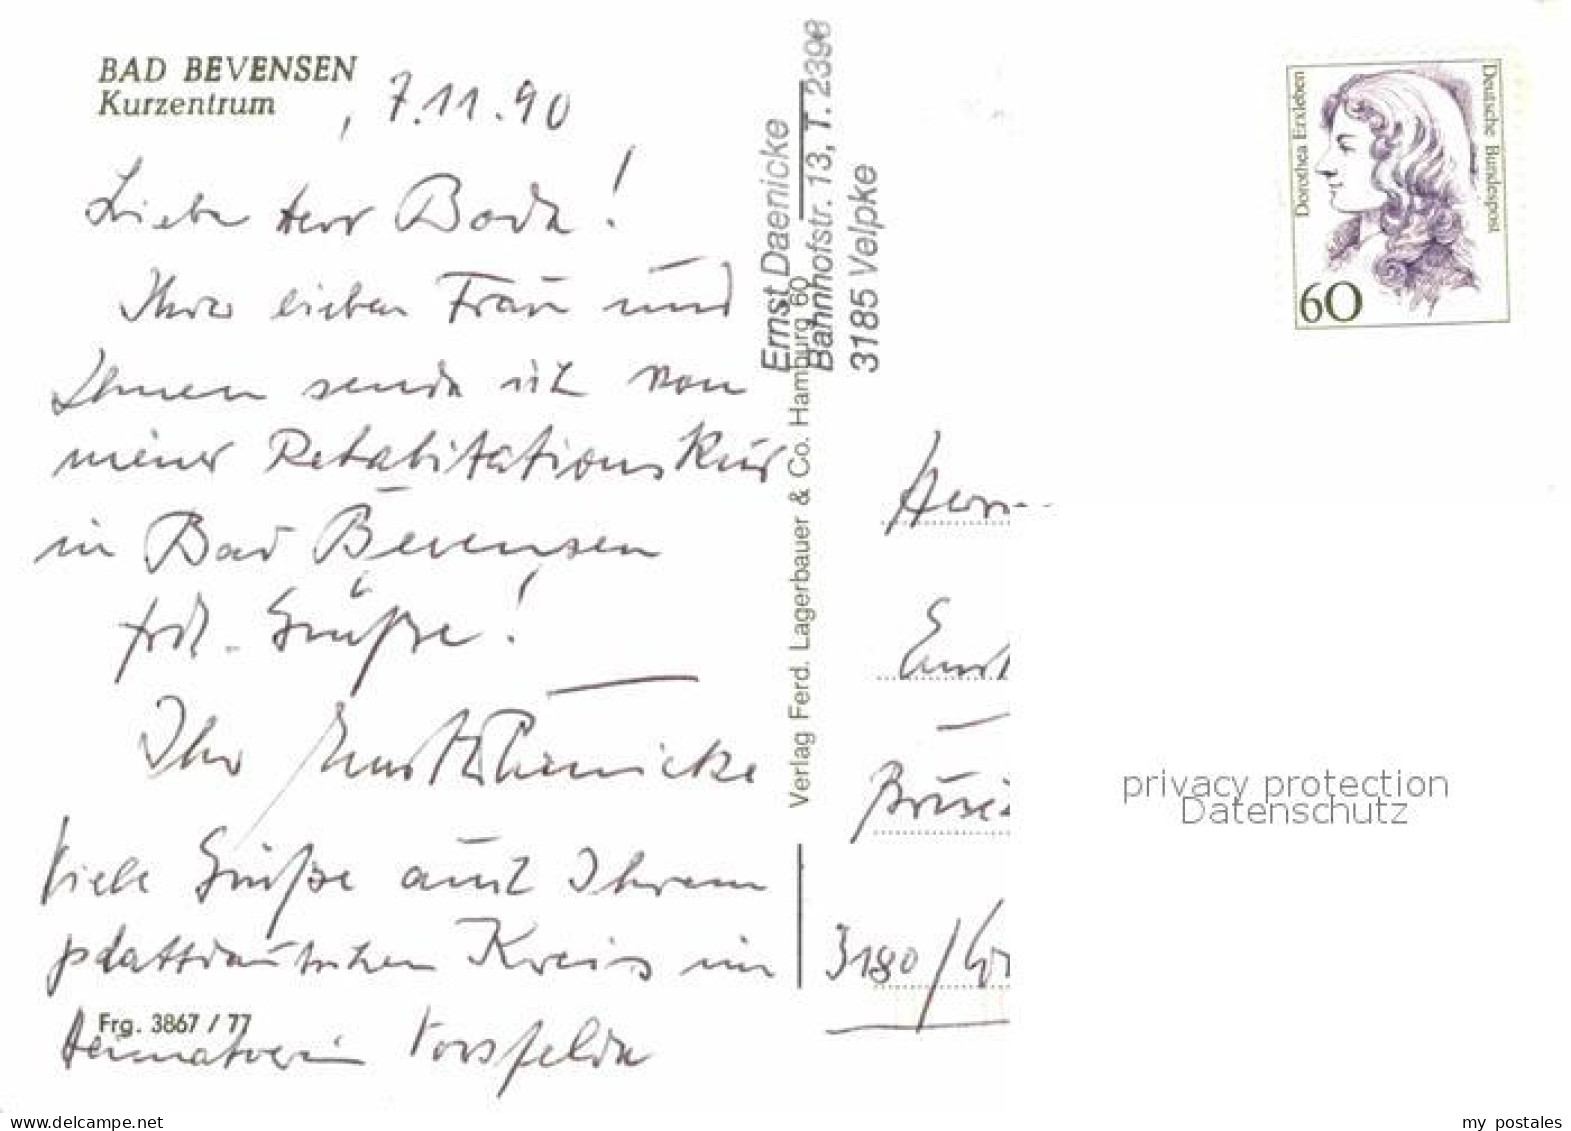 BAD BEVENSEN
Kurzentrum
, 7.11.90
Liebe Herr Bode!
Ihrer lieben Frau und
Ihnen sende ich von
meiner Rehabilitationskur
in Bad Bevensen
frdl. Grüße!
Ihr Ernst Daenicke
Viele Grüße auch Ihrem
plattdeutschen Kreis im
Heimatverein Vorsfelde
Frg. 3867 / 77
Verlag Ferd. Lagerbauer & Co. Hamburg 60
Ernst Daenicke
Bahnhofstr. 13, T. 2398
3185 Velpke
Dorothea Erxleben
Deutsche Bundespost
60
Herrn
Ernst
3180 /
privacy protection
Datenschutz
delcampe.net
my_postales